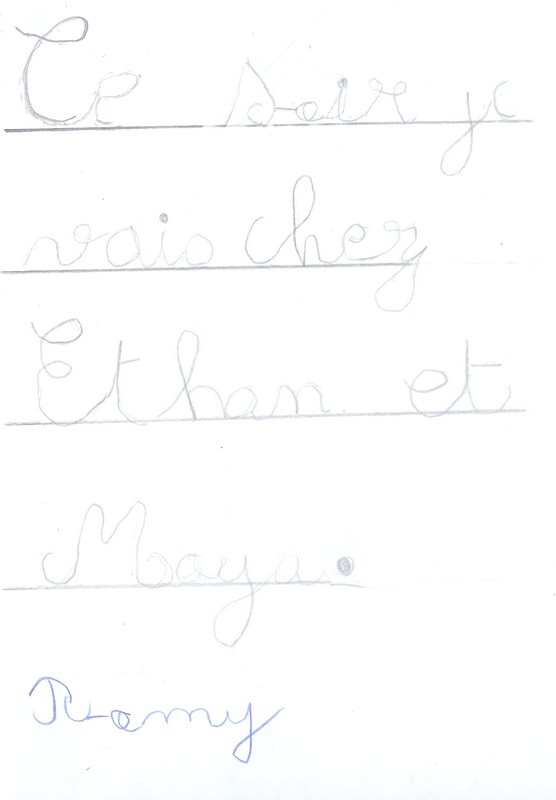 Ce soir je
vais chez
Ethan et
Maya.
Ramy